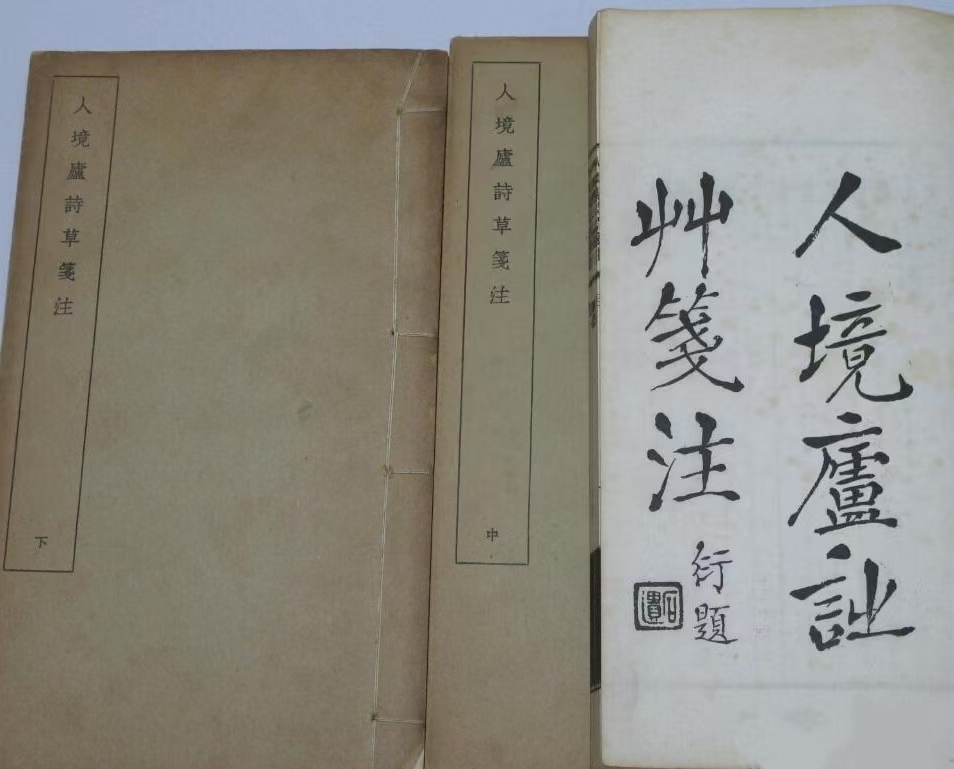 人境廬𧥳
艸箋注
衍題
石遺
人境廬詩草箋注
中
人境廬詩草箋注
下